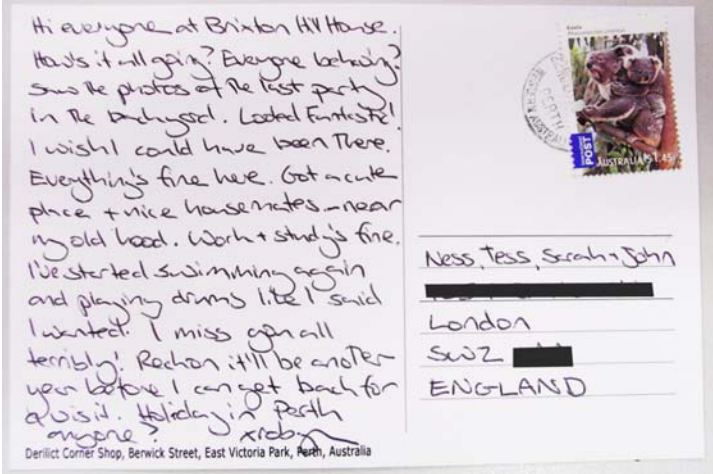 Hi everyone at Brixton Hill House.
How's it all going? Everyone behaving?
Saw the photos of the last party
in the backyard. Looked Fantastic!
I wish I could have been there.
Everything's fine here. Got a cute
place + nice housemates - near
my old hood. Work + study's fine.
I've started swimming again
and playing drums like I said
I wanted. I miss you all
terribly! Reckon it'll be another
year before I can get back for
a visit. Holiday in Perth
anyone? x robyn
Derilict Corner Shop, Berwick Street, East Victoria Park, Perth, Australia
Koala
PERTH
AUSTRALIA
POST
AUSTRALIA $1.45
Ness, Tess, Sarah + John
London
SW2
ENGLAND